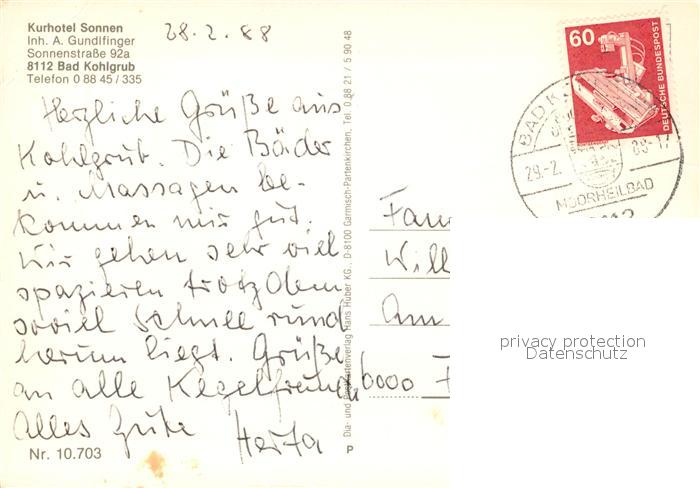 Kurhotel Sonnen
Inh. A. Gundlfinger
Sonnenstraße 92a
8112 Bad Kohlgrub
Telefon 0 88 45 / 335
28.2.88
Herzliche Grüße aus
Kohlgrub. Die Bäder
u. Massagen be-
kommen mir gut.
Wir gehen sehr viel
spazieren trotzdem
soviel Schnee rund
herum liegt. Grüße
an alle Kegelfreunde
Alles Gute
Herta
Nr. 10.703
Dia- und Postkartenverlag Hans Huber KG., D-8100 Garmisch-Partenkirchen, Tel. 0 88 21 / 5 90 48
P
60
DEUTSCHE BUNDESPOST
BAD K
29.-2. 88-17
MOORHEILBAD
Fam
Will
Am
6000 F
privacy protection
Datenschutz